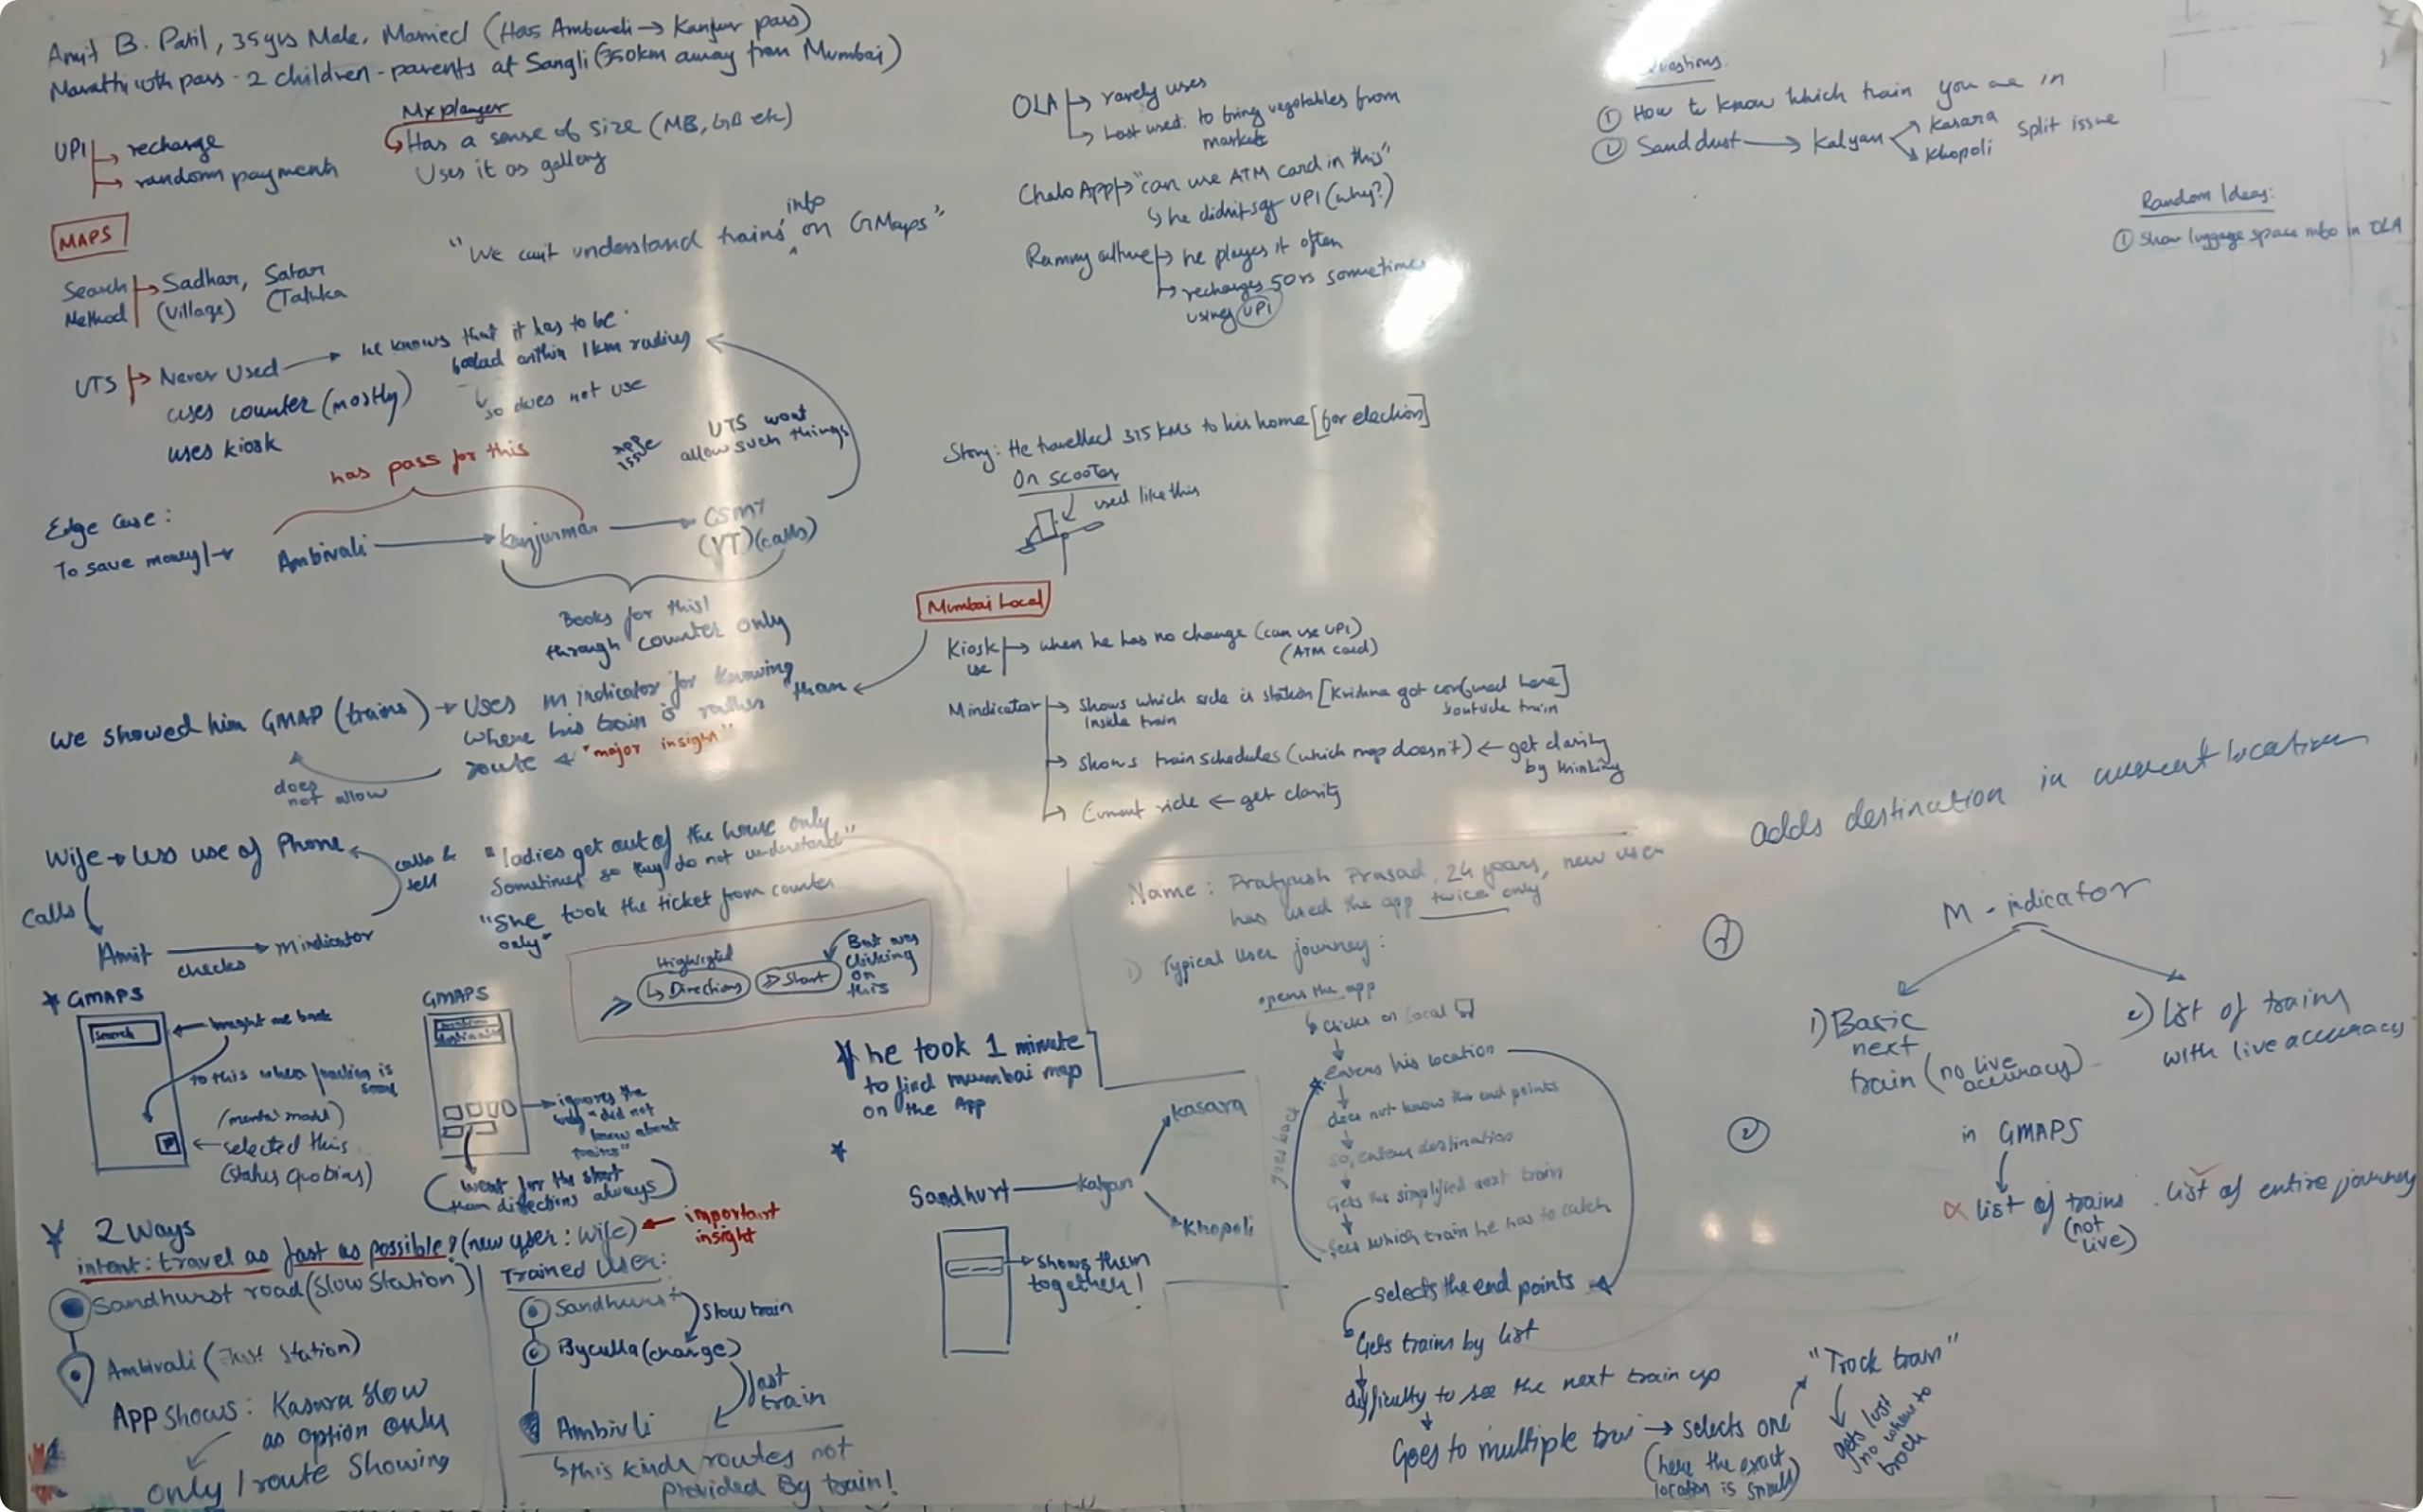 Amit B. Patil, 35yrs Male, Married (Has Ambivali → Kanjur pass)
Marathi 10th pass - 2 children - parents at Sangli (350km away from Mumbai)
UPI → recharge
→ random payments
Mxplayer
Has a sense of size (MB, GB etc)
Uses it as gallery
MAPS
"We can't understand trains info on GMaps"
Search Method → Sadhar, Satar
(Village) (Taluka
UTS → Never Used → he knows that it has to be
booked within 1km radius
so does not use
uses counter (mostly)
uses kiosk
has pass for this
app issue
UTS wont
allow such things
Edge Case:
To save money → Ambivali → Kanjurmar → CSMT
(VT) (calls)
Books for this!
through counter only
We showed him GMAP (trains) → Uses m indicator for knowing
where his train is rather "than
route ← "major insight"
does not allow
Wife → less use of Phone
calls & tell
Calls
Amit → checks → mindicator
"ladies get out of the house only
sometimes so they do not understand"
"She took the ticket from counter
only"
Highlighted
Directions
Start
But was
clicking
on
this
* GMAPS
Search
← brought me back
to this when location is
(mental model)
← selected this
(status quo bias)
GMAPS
→ ignores the
"did not
know about
trains"
(went for the start
than directions always)
2 Ways
intent: travel as fast as possible! (new user: Wife) ← important
insight
Sandhurst road (Slow Station)
Ambivali (Fast Station)
App shows: Kasara slow
as option only
only 1 route showing
Trained User:
Sandhurst
Slow train
Byculla (change)
fast
train
Ambivli
↳ this kinda routes not
provided By train!
OLA → rarely uses
→ Last used: to bring vegetables from
market
Chalo App → "can use ATM card in this"
↳ he didnt say UPI (why?)
Rummy culture → he playes it often
→ recharges 50rs sometimes
using UPI
Story: He travelled 315 KMs to his home [for election]
On scooter
used like this
Mumbai Local
Kiosk use → when he has no change (can use UPI)
(ATM card)
Mindicator → shows which side is station [Krishna got confused here]
inside train
outside train
→ shows train schedules (which map doesn't) ← get clarity
by thinking
→ Current ride ← get clarity
Name: Pratyush Prasad, 24 years, new user
has used the app twice only
1) Typical user journey:
opens the app
↳ clicks on Local
enters his location
does not know the end points
so, enters destination
Gets the simplified next train
sees which train he has to catch
goes back
selects the end points
Gets trains by list
difficulty to see the next train up
Goes to multiple trai → selects one
(here the exact
location is small)
"Track train"
gets lost
no where to
track
* he took 1 minute
to find mumbai map
on the App
*
Sandhurt — Kalyan
Kasara
Khopoli
→ shows them
together!
Questions:
① How to know which train you are in
② Sand dust → Kalyan
Kasara
Khopoli
Split issue
Random Ideas:
① Show luggage space info in OLA
adds destination in current location
①
M-indicator
1) Basic
next
train (no live
accuracy)
2) list of trains
with live accuracy
②
in GMAPS
list of trains
(not
live)
list of entire journey